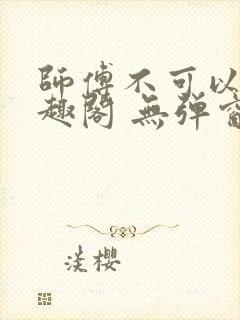 師傅不可以
趣閣 無彈
淡櫻